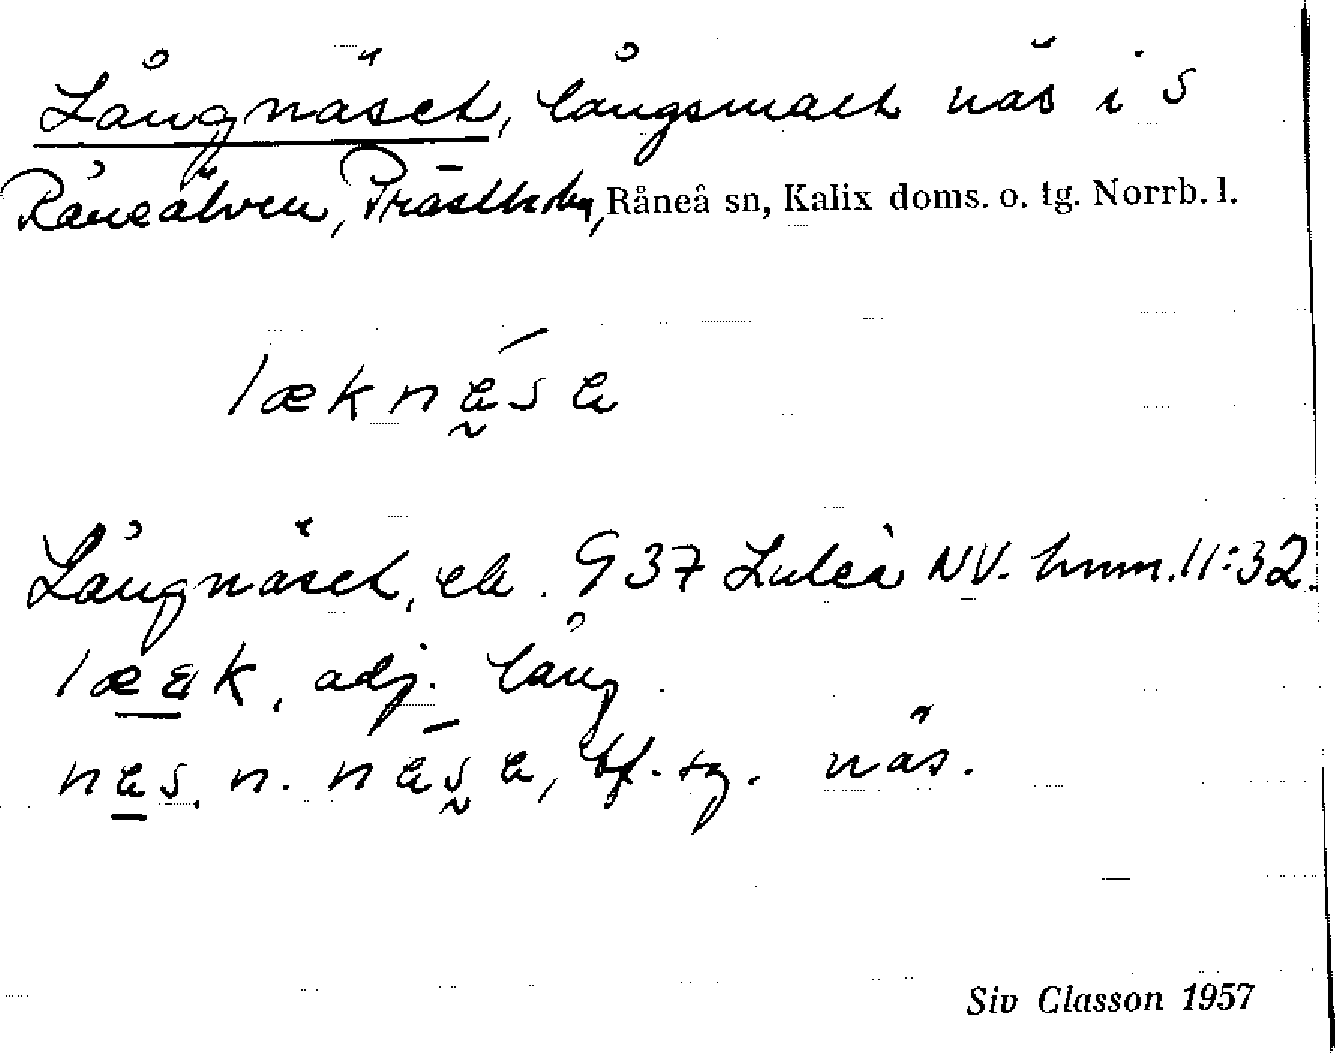 Långnäset, långsmalt näs i S
Råneälven, Prästhlm, Råneå sn, Kalix doms. o. tg. Norrb. l.
læknása
Långnäset, ek. 937 Luleå NV. hmm. 11:32.
læak, adj. lång.
nas, n. nása, bf. sg. näs.
Siv Classon 1957